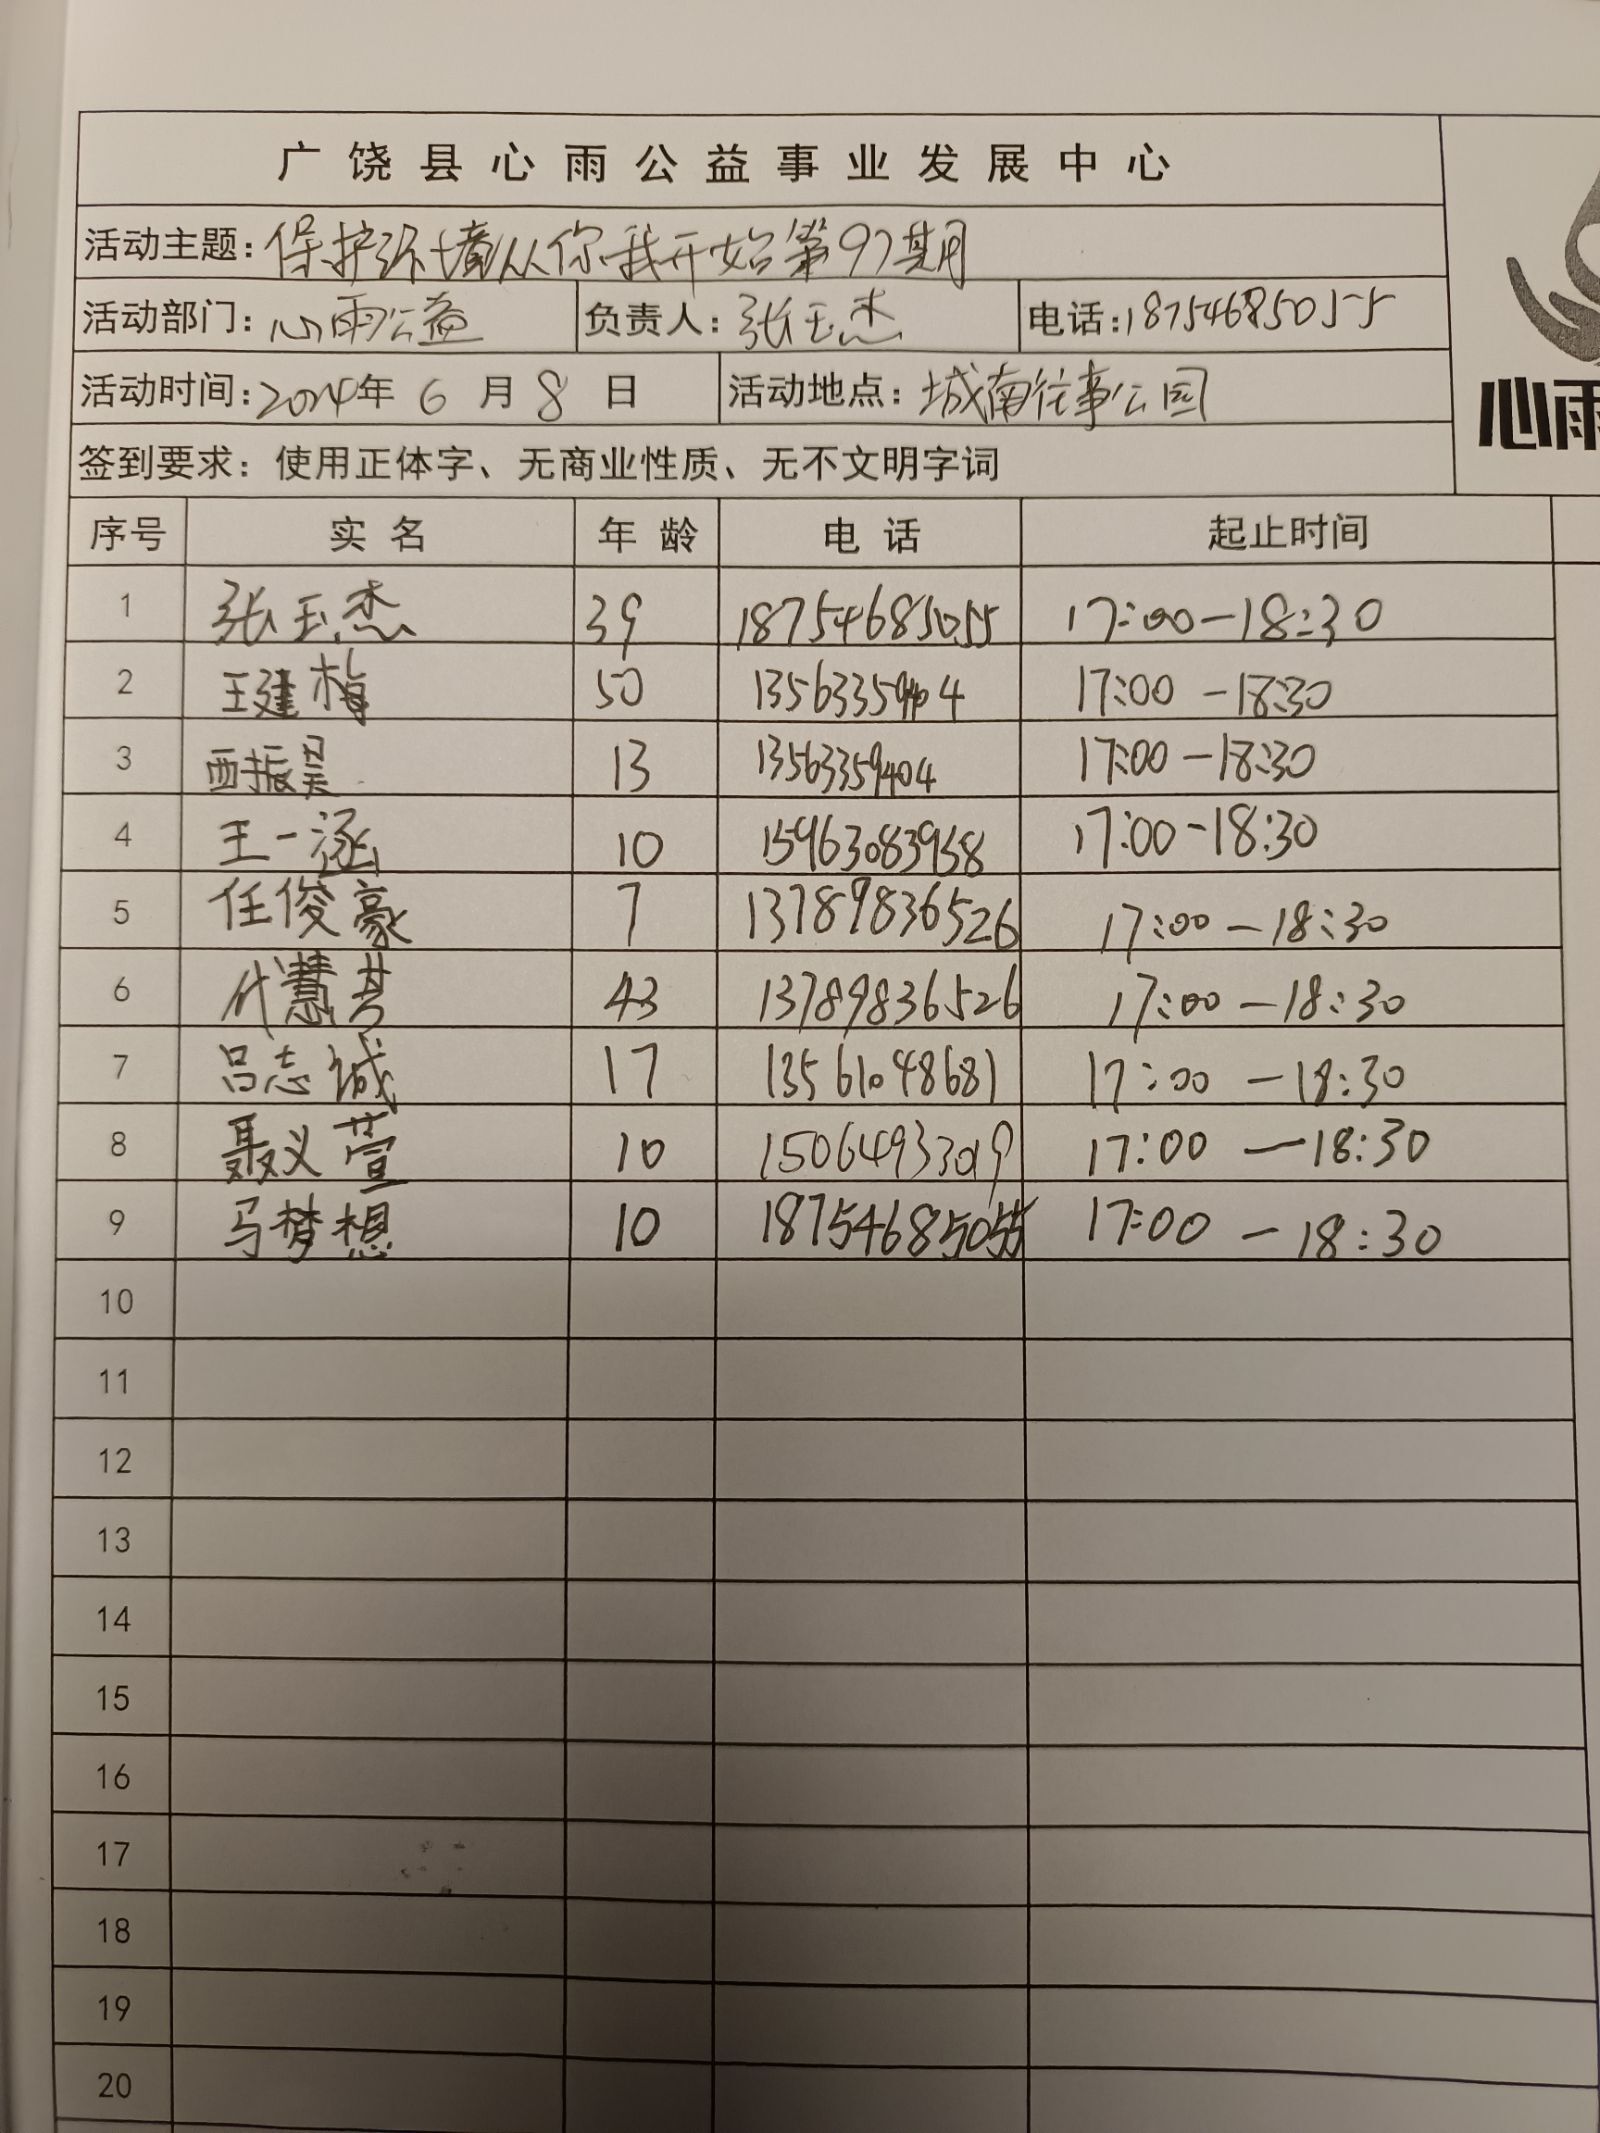 广饶县心雨公益事业发展中心
活动主题：保护环境从你我开始第97期
活动部门：心雨公益 负责人：张玉杰 电话：18754685055
活动时间：2024年6月8日 活动地点：城南往事公园
心雨
签到要求：使用正体字、无商业性质、无不文明字词
序号 实名 年龄 电话 起止时间
1 张玉杰 39 18754685055 17:00-18:30
2 王建梅 50 13563359404 17:00-18:30
3 西振昊 13 13563359404 17:00-18:30
4 王一涵 10 15963083958 17:00-18:30
5 任俊豪 7 13789836526 17:00-18:30
6 代慧芳 43 13789836526 17:00-18:30
7 吕志诚 17 13561048681 17:00-18:30
8 聂义萱 10 15064933019 17:00-18:30
9 马梦想 10 18754685055 17:00-18:30
10
11
12
13
14
15
16
17
18
19
20